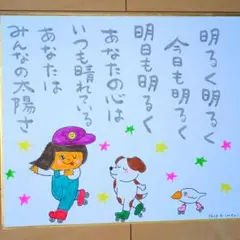 明るく明るく
今日も明るく
明日も明るく
あなたの心は
いつも晴れている
あなたは
みんなの太陽さ